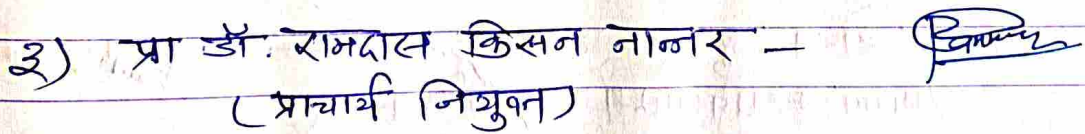 ३) प्रा डॉ. रामदास किसन नान्नर –
(प्राचार्य नियुक्त)